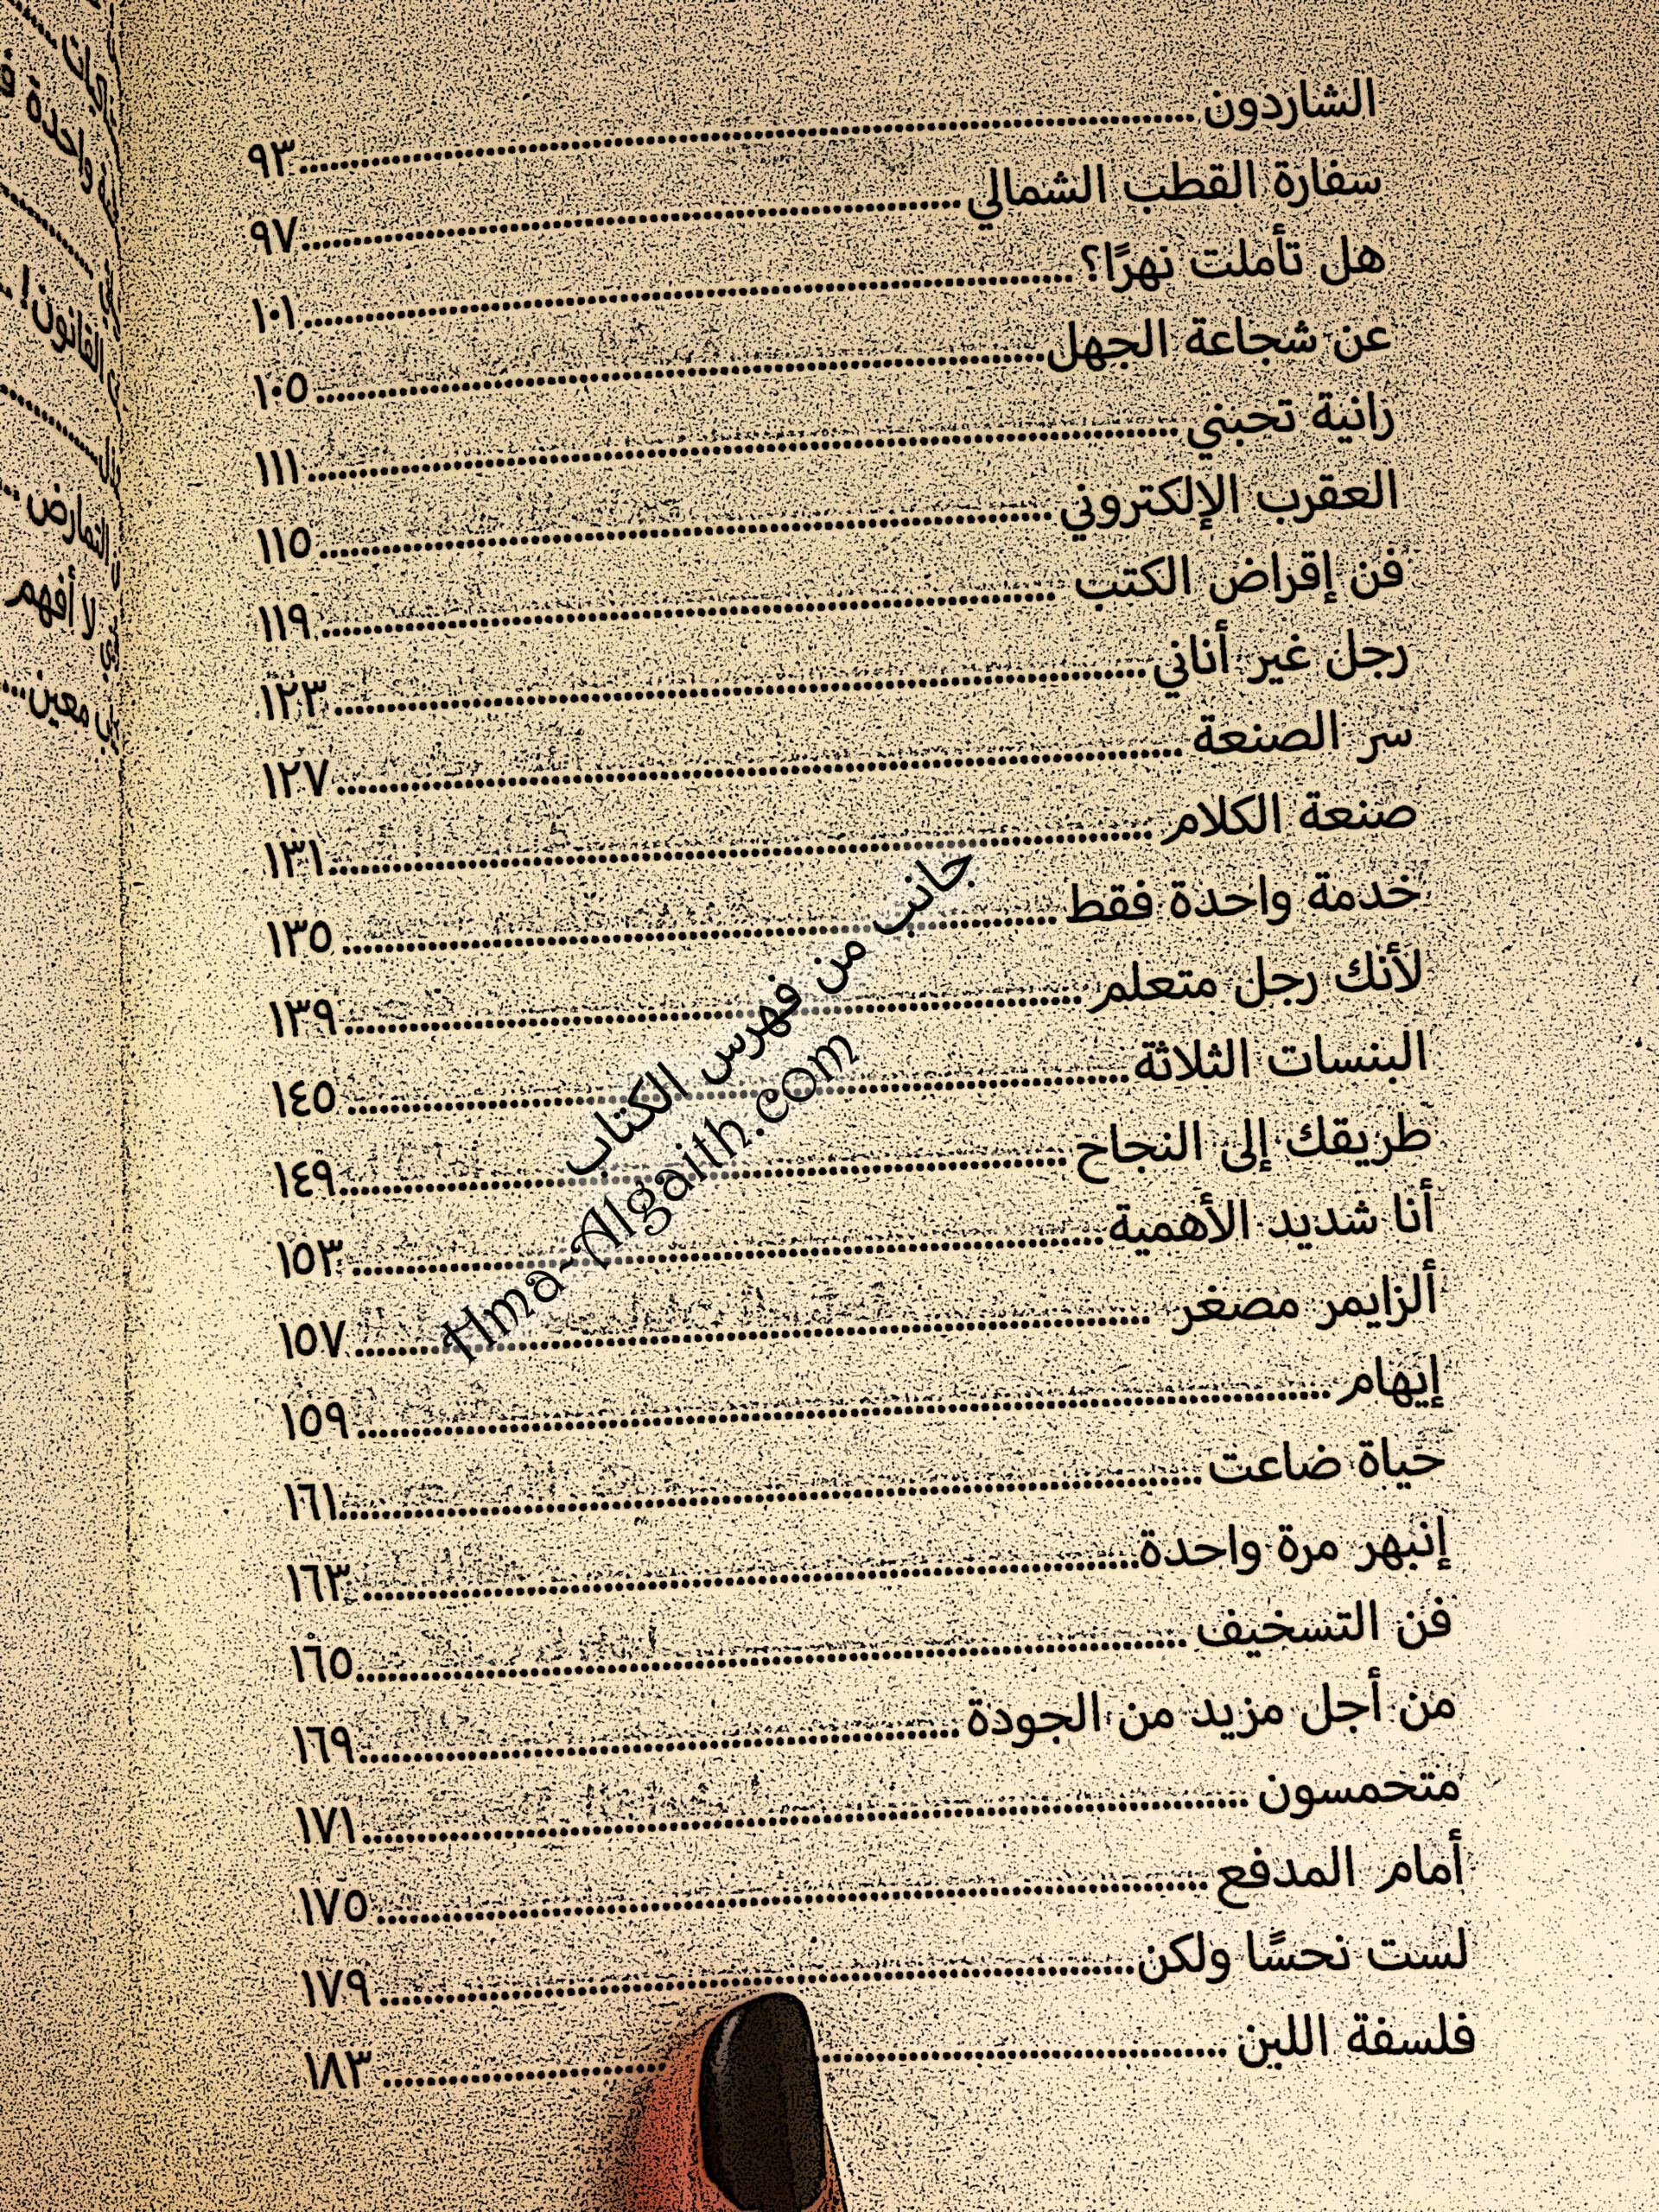 الشاردون ٩٣
سفارة القطب الشمالي ٩٧
هل تأملت نهرًا؟ ١٠١
عن شجاعة الجهل ١٠٥
رانية تحبني ١١١
العقرب الإلكتروني ١١٥
فن إقراض الكتب ١١٩
رجل غير أناني ١٢٣
سر الصنعة ١٢٧
صنعة الكلام ١٣١
خدمة واحدة فقط ١٣٥
لأنك رجل متعلم ١٣٩
البنسات الثلاثة ١٤٥
طريقك إلى النجاح ١٤٩
أنا شديد الأهمية ١٥٣
ألزايمر مصغر ١٥٧
إيهام ١٥٩
حياة ضاعت ١٦١
إنبهر مرة واحدة ١٦٣
فن التسخيف ١٦٥
من أجل مزيد من الجودة ١٦٩
متحمسون ١٧١
أمام المدفع ١٧٥
لست نحسًا ولكن ١٧٩
فلسفة اللين ١٨٣
جانب من فهرس الكتاب
Hma-Algaith.com
واحدة
القانون!
التمارض
لا أفهم
معين